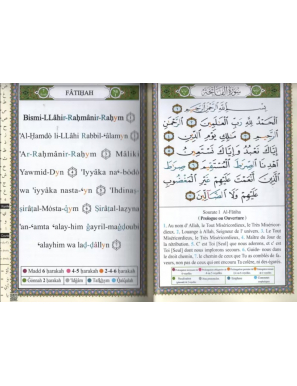 FÂTIḤAH
Bismi-LLâhir-Raḥmânir-Raḥym
'Al-Ḥamdò li-LLâhi Rabbil-ʿâlamyn
'Ar-Raḥmânir-Raḥym Mâliki
Yawmid-Dyn 'Iyyâka naʿbòdò
wa 'iyyâka nastaʿyn 'Ihdinaṣ-
ṣirâṭal-Mòstaqym Ṣirâṭal-laẓyna
'anʿamta ʿalayhim ġayril-maġḍòòbi
ʿalayhim wa laḍ-ḍâllyn
Madd 6 ḥarakah 4-5 ḥarakah 2-4-6 ḥarakah
سورة الفاتحة
بسم الله الرحمن الرحيم
الحمد لله رب العالمين الرحمن
الرحيم مالك يوم الدين
إياك نعبد وإياك نستعين
اهدنا الصراط المستقيم صراط
الذين أنعمت عليهم غير المغضوب
عليهم ولا الضالين
Sourate 1 Al-Fâtiha
( Prologue ou Ouverture )
1. Au nom d'Allah, le Tout Miséricordieux, le Très Miséricor-
dieux. 2. Louange à Allah, Seigneur de l'univers. 3. Le Tout
Miséricordieux, le Très Miséricordieux, 4. Maître du Jour de
la rétribution. 5. C'est Toi [Seul] que nous adorons, et c'est
Toi [Seul] dont nous implorons secours. 6. Guide- nous dans
le droit chemin, 7. le chemin de ceux que Tu as comblés de fa-
veurs, non pas de ceux qui ont encouru Ta colère, ni des égarés.